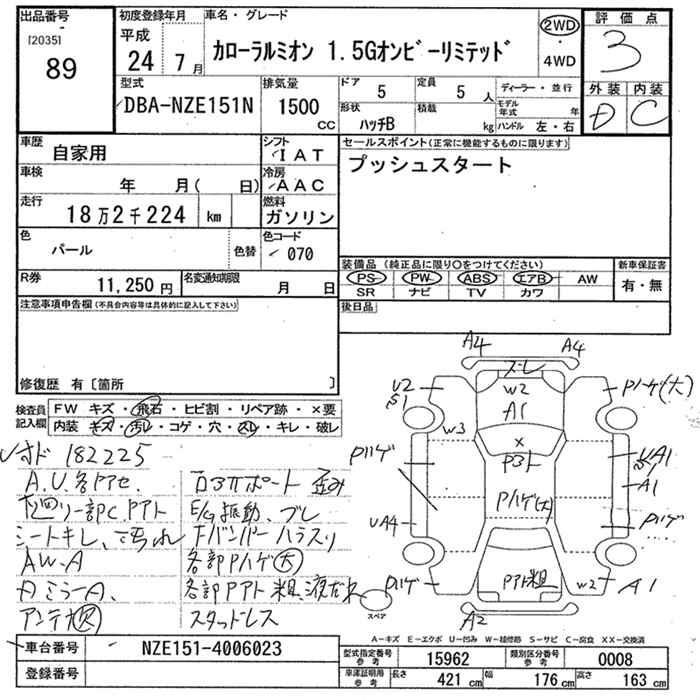 出品番号
[2035]
89
初度登録年月
平成
24 7月
車名・グレード
カローラルミオン 1.5Gオンビーリミテッド
2WD
・
4WD
評価点
3
外装 内装
D C
型式
DBA-NZE151N
排気量
1500
CC
ドア
5
定員
5 人
形状
ハッチB
積載
kg
ディーラー・並行
モデル年式 年
ハンドル 左・右
車歴
自家用
シフト
IAT
車検
年 月( 日)
冷房
AAC
走行
18万2千224 km
燃料
ガソリン
色
パール
色替
色コード
070
R券
11,250円
名変通知期限
月 日
セールスポイント(正常に機能するものに限ります)
プッシュスタート
装備品(純正品に限り〇をつけてください)
PS PW ABS エアB AW
SR ナビ TV カワ
新車保証書
有・無
後日品
注意事項申告欄(不具合内容等は具体的に記入して下さい)
修復歴 有〔箇所 〕
検査員記入欄
FW キズ・飛石・ヒビ割・リペア跡・×要
内装 キズ・汚レ・コゲ・穴・スレ・キレ・破レ
182225
A.U.各アセ.
下廻リ一部C.Pアト
シートキレ、汚れ
AW-A
Aミラーム.
アンテナ欠
サポート 歪み
E/g振動、ブレ
Fバンパーハラスリ
各部Pハゲ大
各部Pアト粗、液だれ
スタッドレス
スペア
A4 A4
ズレ
U2
S1
W2
A1
Pハゲ(大)
W3
×
Pアト
Pハゲ
UA1
S1
A1
Pハゲ(大)
UA4
Pハゲ
Pハゲ
Pアト粗
W2
A1
A2
A－キズ E－エクボ U－凹み W－補修跡 S－サビ C－腐食 XX－交換済
車台番号
NZE151-4006023
登録番号
型式指定番号
参考
15962
類別区分番号
参考
0008
車庫証明用
参考
長さ 421 cm 幅 176 cm 高さ 163 cm